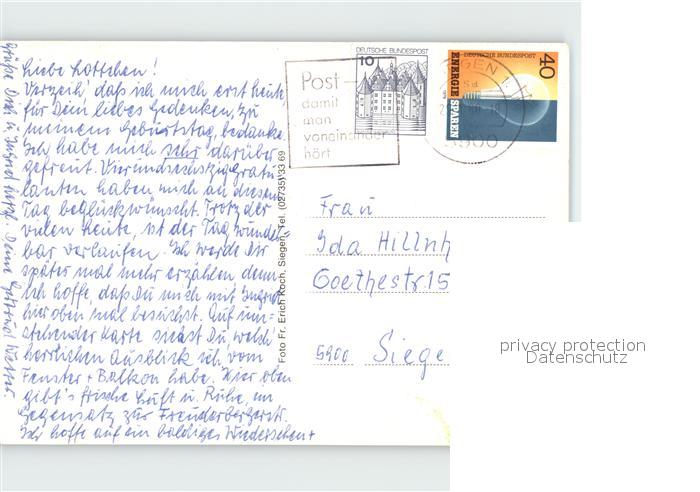 Liebe Lottchen!
Verzeih' daß ich mich erst heute,
für Dein liebes Gedenken, zu
meinem Geburtstag, bedanke.
Ich habe mich sehr darüber
gefreut. Vierundsechzig gratu
lanten haben mich an diesem
Tag beglückwünscht. Trotz der
vielen Leute, ist der Tag wunder
bar verlaufen. Ich werde Dir
später mal mehr erzählen denn
ich hoffe, daß Du mich mit Ingrid
hier oben mal besuchst. Auf um-
stehender Karte siehst Du, welch'
herrlichen Ausblick ich vom
Fenster + Balkon habe. Hier oben
gibt's frische Luft u. Ruhe, im
Gegensatz zur Freudenbergerstr.
Ich hoffe auf ein baldiges Wiedersehen +
Grüße Dich u. Ingrid herzl. Deine Gertrud
Foto Fr. Erich Koch, Siegen, Tel. (02735) 33 69
Post-
damit
man
voneinander
hört
DEUTSCHE BUNDESPOST
10
DEUTSCHE BUNDESPOST
40
ENERGIE SPAREN
5900
Frau
Ida Hillnh
Goethestr 15
5900 Siege
privacy protection
Datenschutz